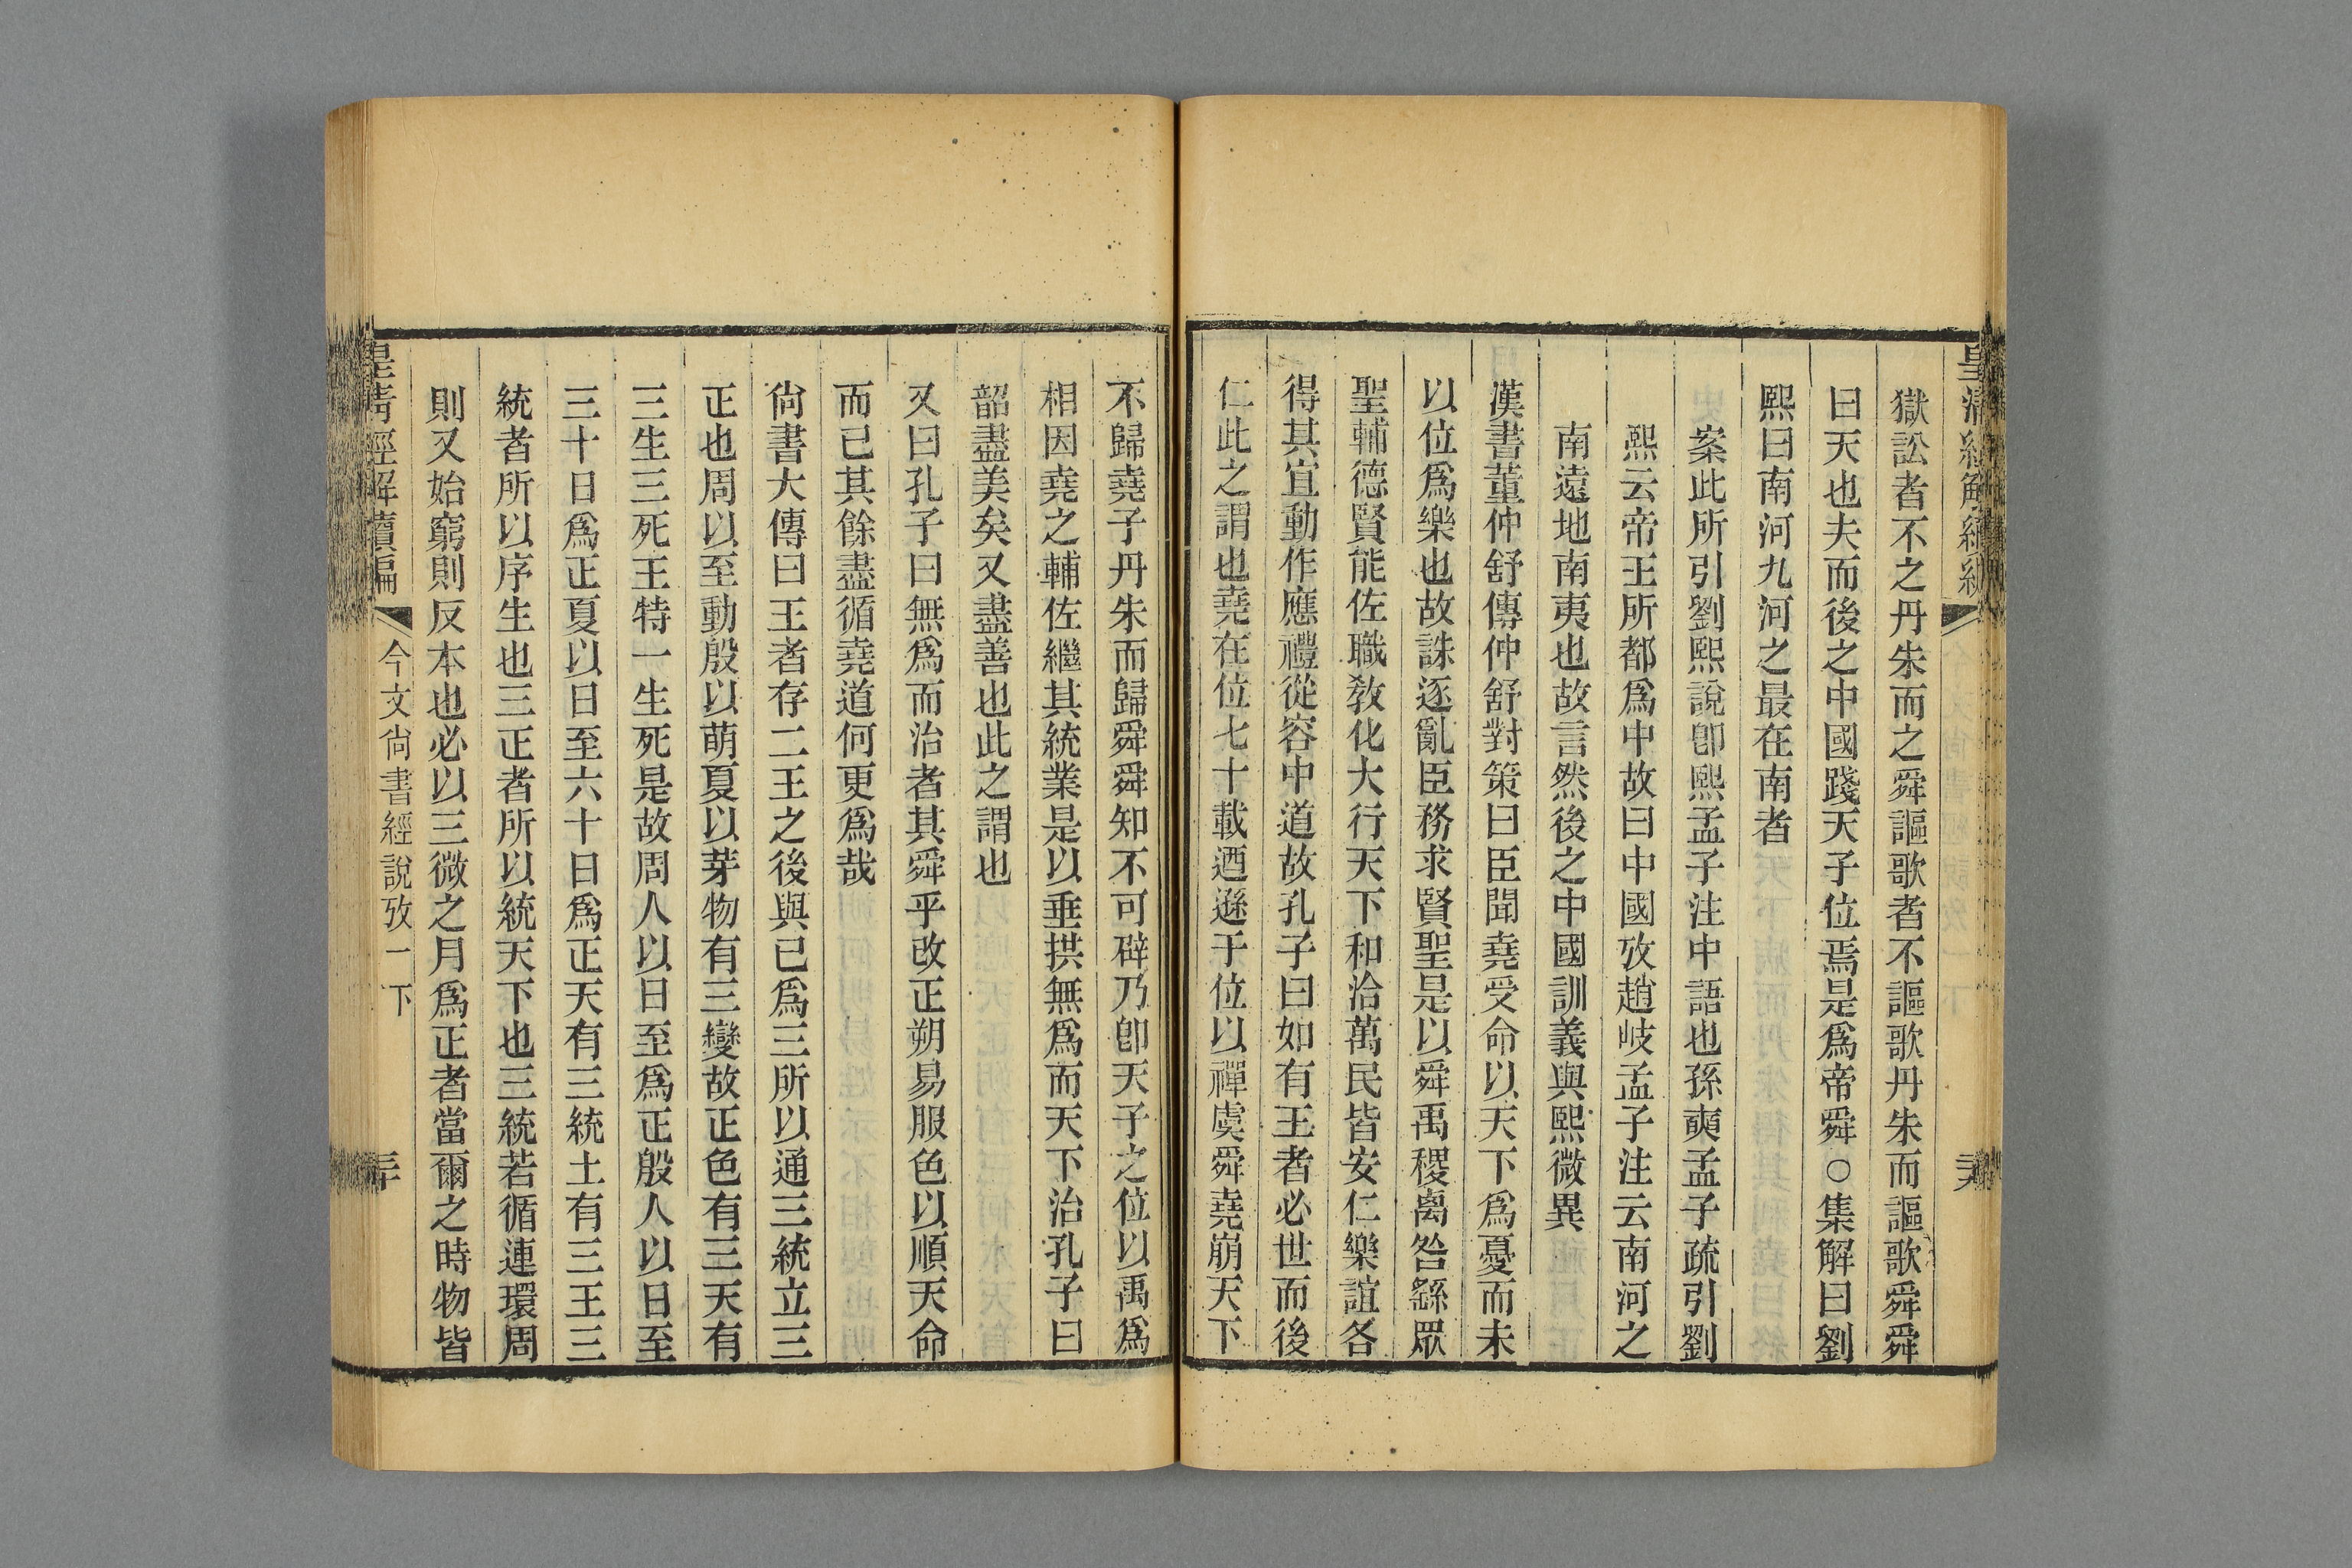 獄訟者不之丹朱而之舜謳歌者不謳歌丹朱而謳歌舜舜
曰天也夫而後之中國踐天子位焉是爲帝舜○集解曰劉
熙曰南河九河之最在南者
案此所引劉熙說卽熙孟子注中語也孫奭孟子疏引劉
熙云帝王所都爲中故曰中國攷趙岐孟子注云南河之
南遠地南夷也故言然後之中國訓義與熙微異
漢書董仲舒傳仲舒對策曰臣聞堯受命以天下爲憂而未
以位爲樂也故誅逐亂臣務求賢聖是以舜禹稷卨咎繇眾
聖輔德賢能佐職敎化大行天下和洽萬民皆安仁樂誼各
得其宜動作應禮從容中道故孔子曰如有王者必世而後
仁此之謂也堯在位七十載迺遜于位以禪虞舜堯崩天下
不歸堯子丹朱而歸舜舜知不可辟乃卽天子之位以禹爲
相因堯之輔佐繼其統業是以垂拱無爲而天下治孔子曰
韶盡美矣又盡善也此之謂也
又曰孔子曰無爲而治者其舜乎改正朔易服色以順天命
而已其餘盡循堯道何更爲哉
尙書大傳曰王者存二王之後與已爲三所以通三統立三
正也周以至動殷以萌夏以芽物有三變故正色有三天有
三生三死王特一生死是故周人以日至爲正殷人以日至
三十日爲正夏以日至六十日爲正天有三統土有三王三
統者所以序生也三正者所以統天下也三統若循連環周
則又始窮則反本也必以三微之月爲正者當爾之時物皆
皇淸經解續編
今文尙書經說攷一下
三十